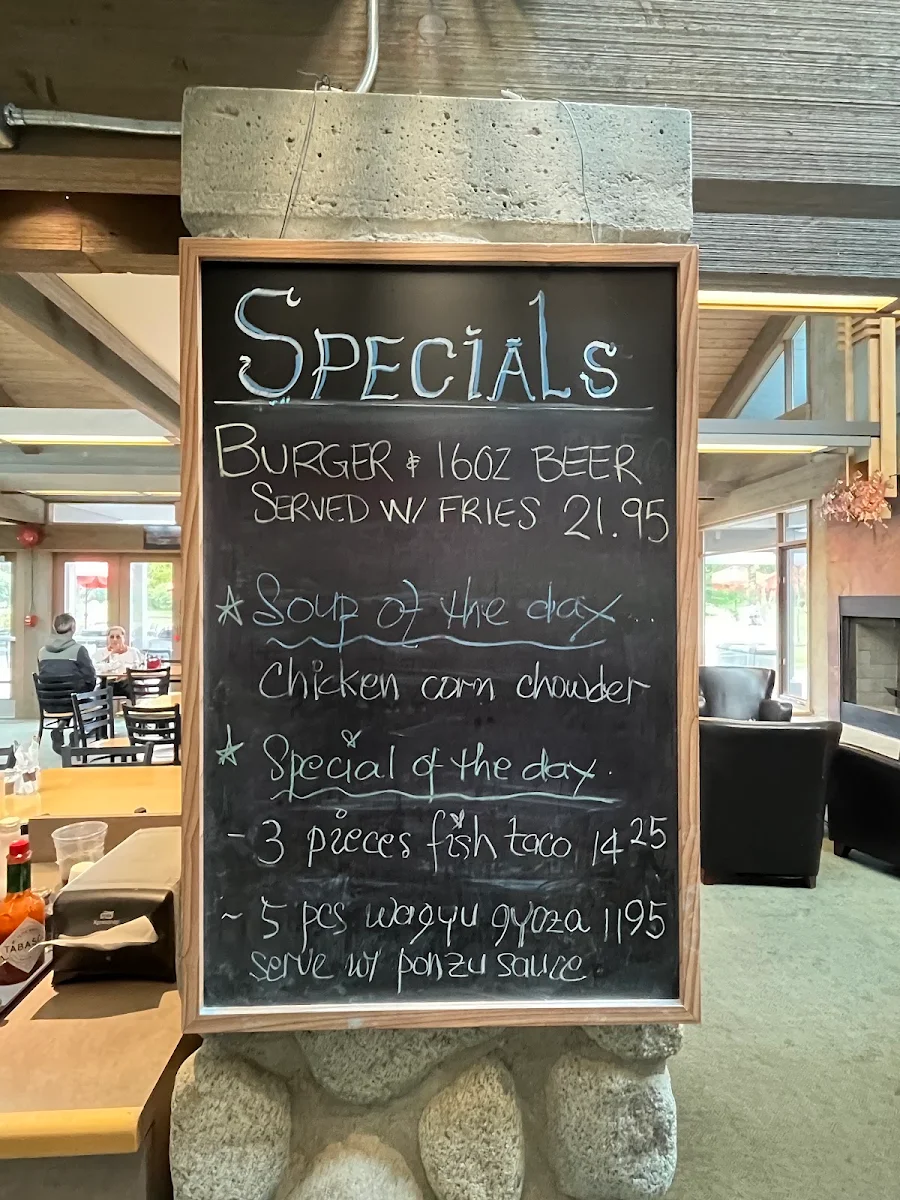 SPECIALS
BURGER & 16OZ BEER
SERVED W/ FRIES 21.95
☆ Soup of the day...
Chicken corn chowder
☆ Special of the day.
- 3 pieces fish taco 14 25
~ 5 pcs wagyu gyoza 11 95
serve w/ ponzu sauce
TABAS